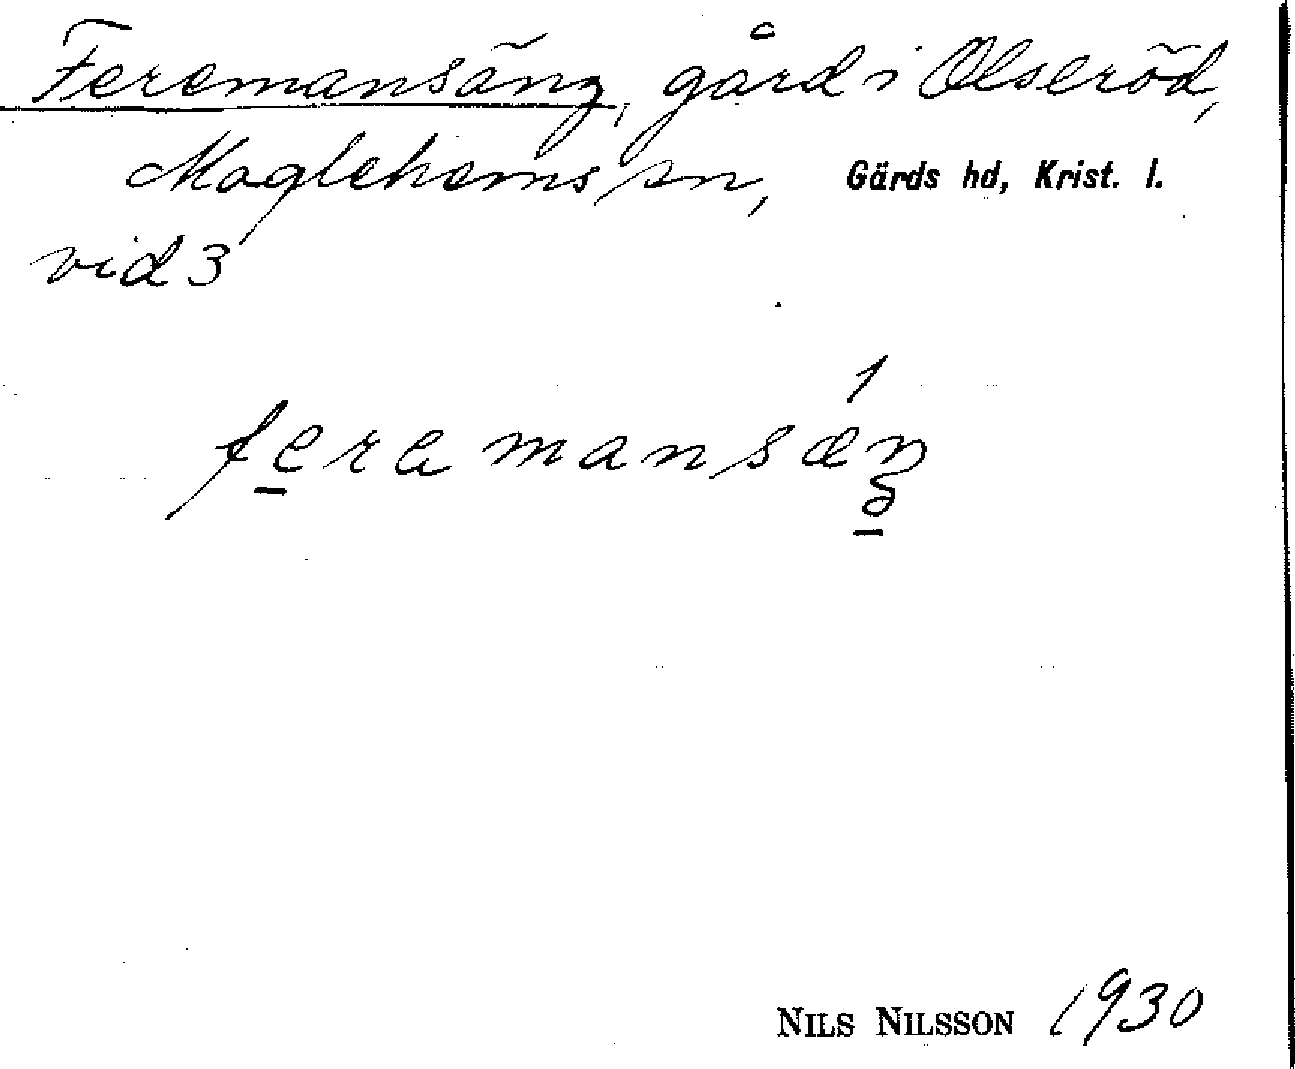 Feremansäng, gård i Olseröd,
Maglehems sn, Gärds hd, Krist. l.
vid 3
feramansæŋ
1
NILS NILSSON 1930